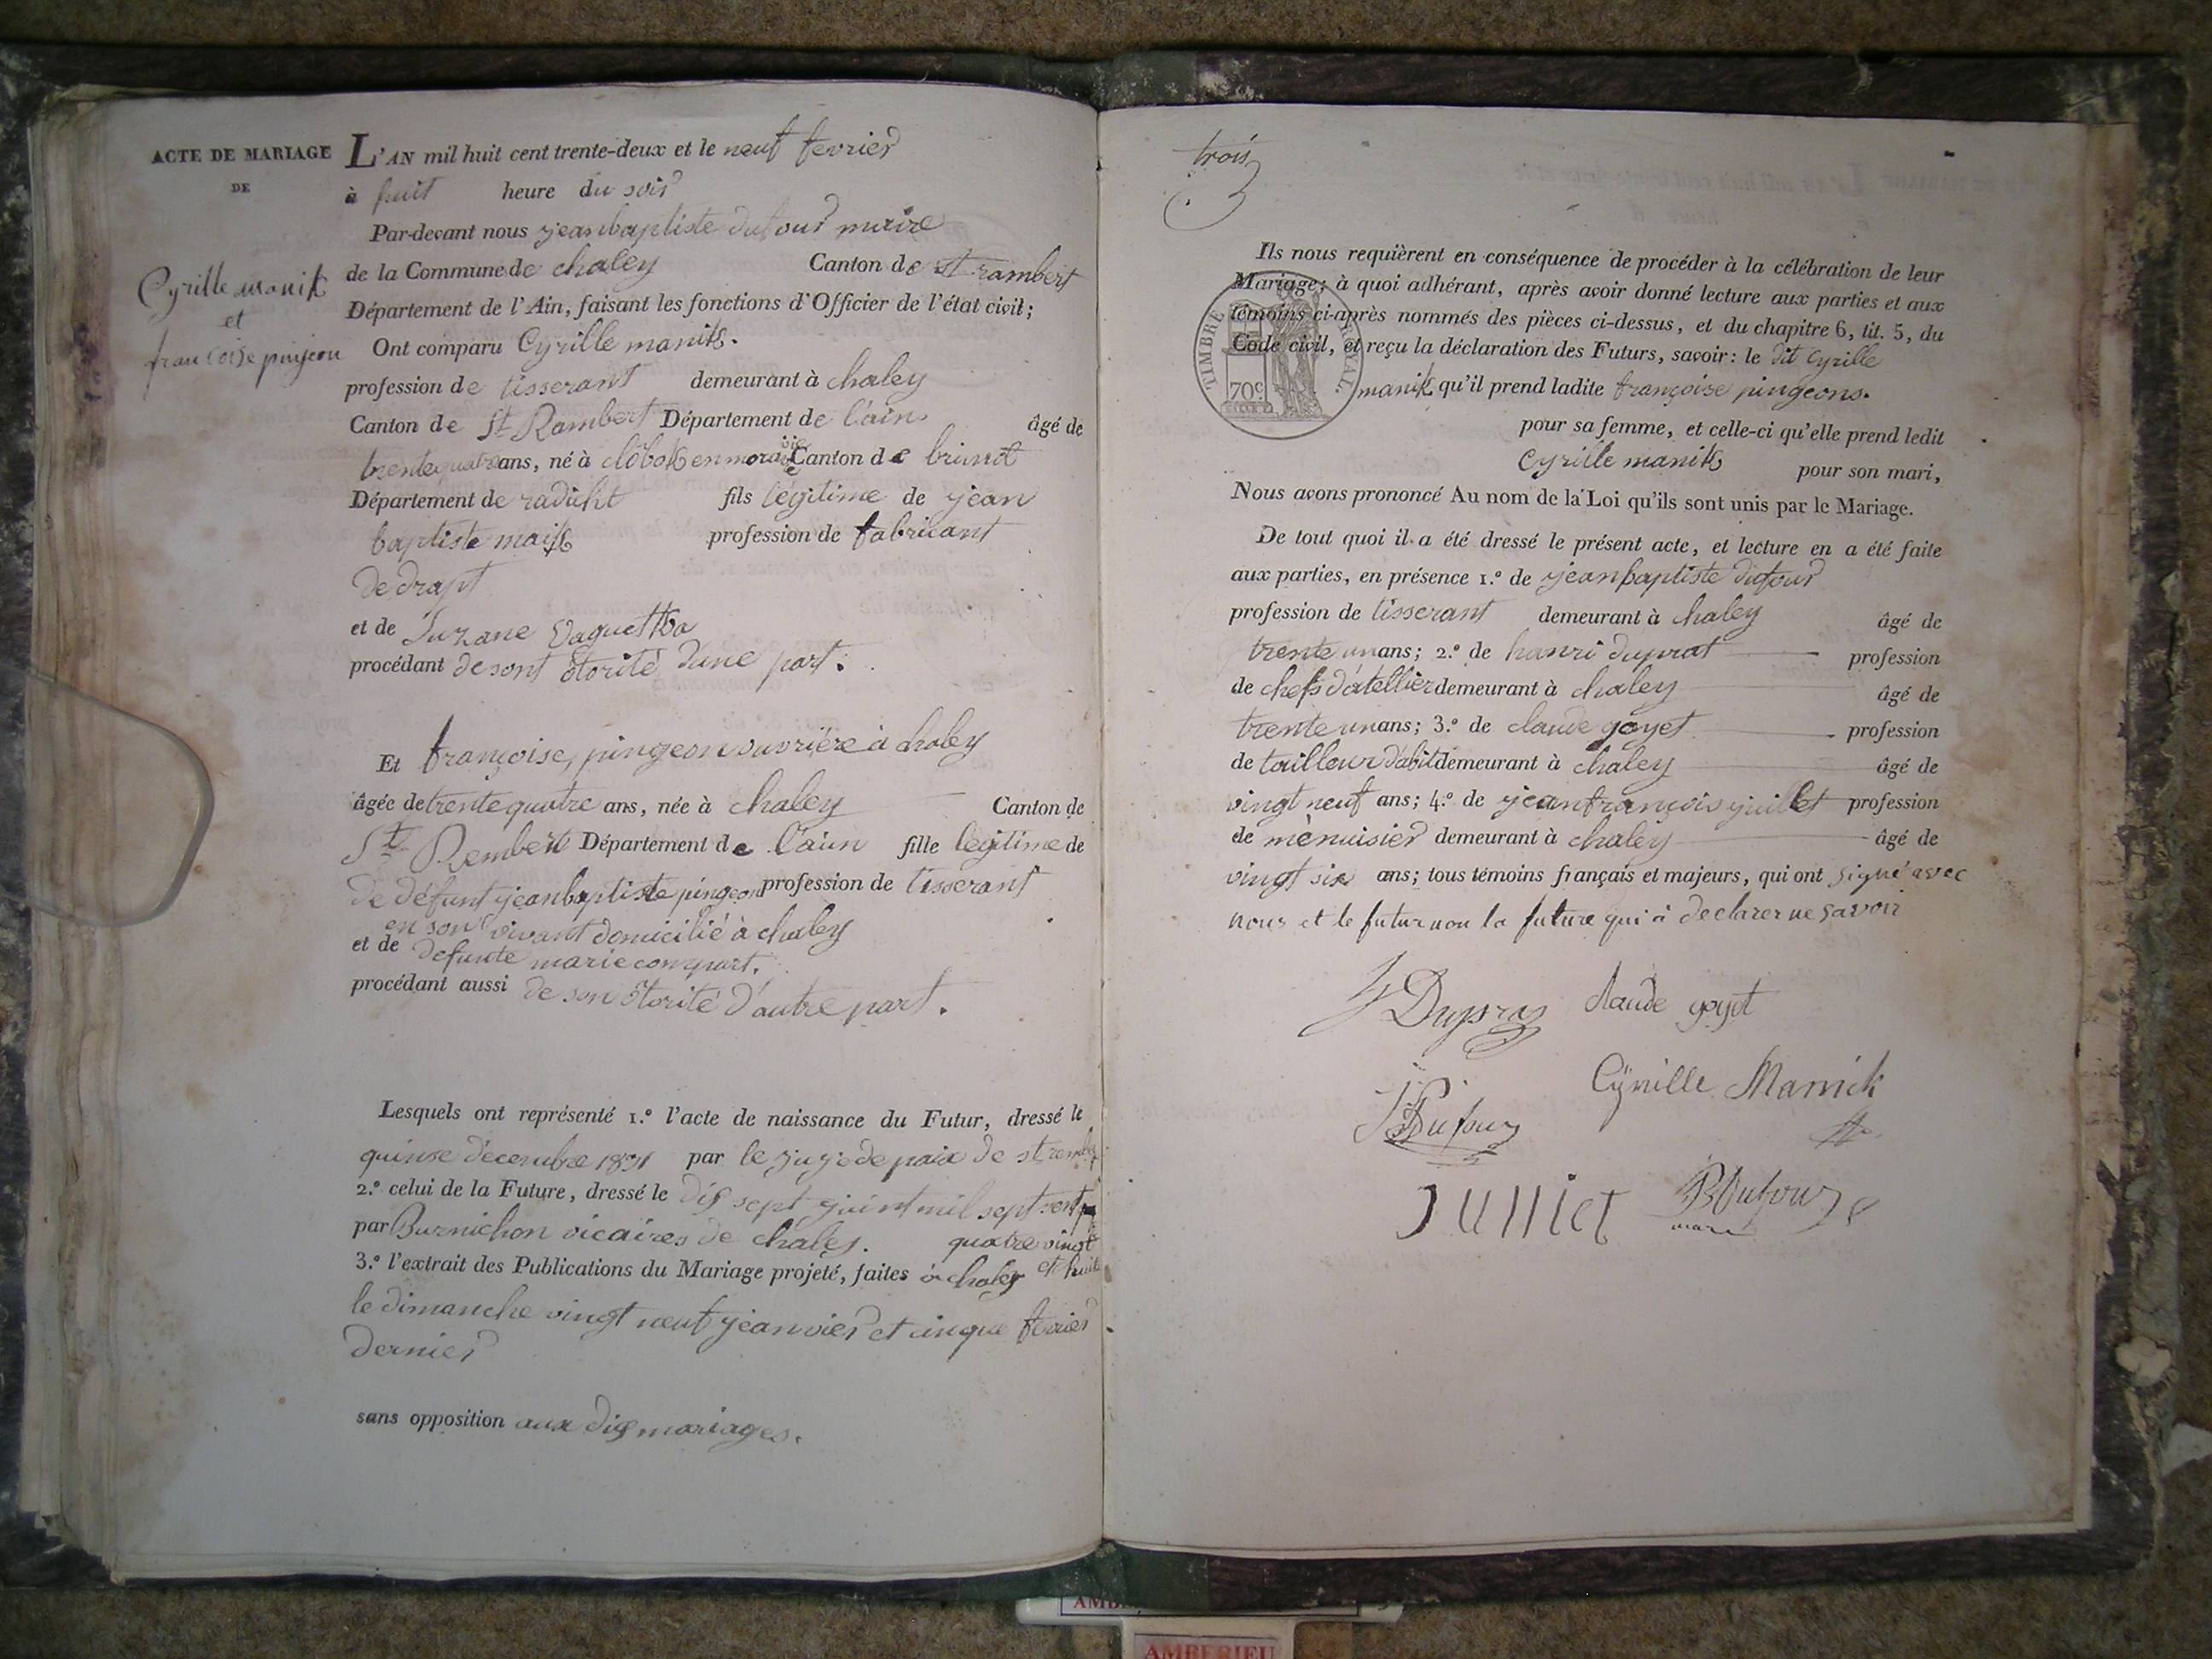 ACTE DE MARIAGE
DE
Cyrille manik
et
francoise pinjeon
L'AN mil huit cent trente-deux et le neuf fevrier
à huit heure du soir
Par-devant nous jeanbaptiste dufour maire
de la Commune de chaley Canton de st rambert
Département de l'Ain, faisant les fonctions d'Officier de l'état civil;
Ont comparu Cyrille manik.
profession de tisserant demeurant à chaley
Canton de St Rambert Département de l'ain âgé de
trente quatre ans, né à clobok en moravie Canton de brunt
Département de radicht fils légitime de jean
baptiste maik profession de fabricant
de drapt
et de Suzane Vaguettka
procédant de sont otorité dune part.
Et françoise, pingeon ouvrière à chaley
âgée de trente quatre ans, née à chaley Canton de
St Rembert Département de l'ain fille légitime de
de défunt jeanbaptiste pingeon profession de tisserant
en son vivant domicilié à chaley
et de defunte marie compart.
procédant aussi de son otorité d'autre part.
Lesquels ont représenté 1.° l'acte de naissance du Futur, dressé le
quinse décembre 1831 par le juge de paix de st
2.° celui de la Future, dressé le dis sept juint mil sept sent
par Burnichon vicaires de chaley. quatre vingt
3.° l'extrait des Publications du Mariage projeté, faites à chaley et huit
le dimanche vingt neuf jeanvier et cinque fevrier
dernier
sans opposition aux dis mariages.
trois
3
TIMBRE ROYAL
70c
Ils nous requièrent en conséquence de procéder à la célébration de leur
Mariage; à quoi adhérant, après avoir donné lecture aux parties et aux
témoins ci-après nommés des pièces ci-dessus, et du chapitre 6, tit. 5, du
Code civil, et reçu la déclaration des Futurs, savoir: le dit Cyrille
manik qu'il prend ladite françoise pingeons.
pour sa femme, et celle-ci qu'elle prend ledit
Cyrille manik pour son mari,
Nous avons prononcé Au nom de la Loi qu'ils sont unis par le Mariage.
De tout quoi il a été dressé le présent acte, et lecture en a été faite
aux parties, en présence 1.° de jeanbaptiste dufour
profession de tisserant demeurant à chaley âgé de
trente un ans; 2.° de hanri duprat profession
de chefs d'atellier demeurant à chaley âgé de
trente un ans; 3.° de claude goyet profession
de tailleur d'abit demeurant à chaley âgé de
vingt neuf ans; 4.° de jeanfrançois juillet profession
de mènuisier demeurant à chaley âgé de
vingt six ans; tous témoins français et majeurs, qui ont signé avec
nous et le futur non la future qui a declarer ne savoir
Dupras claude goyet
Cÿrille Manick
Dufour
JUllieT BDufour
maire
AMBERIEU